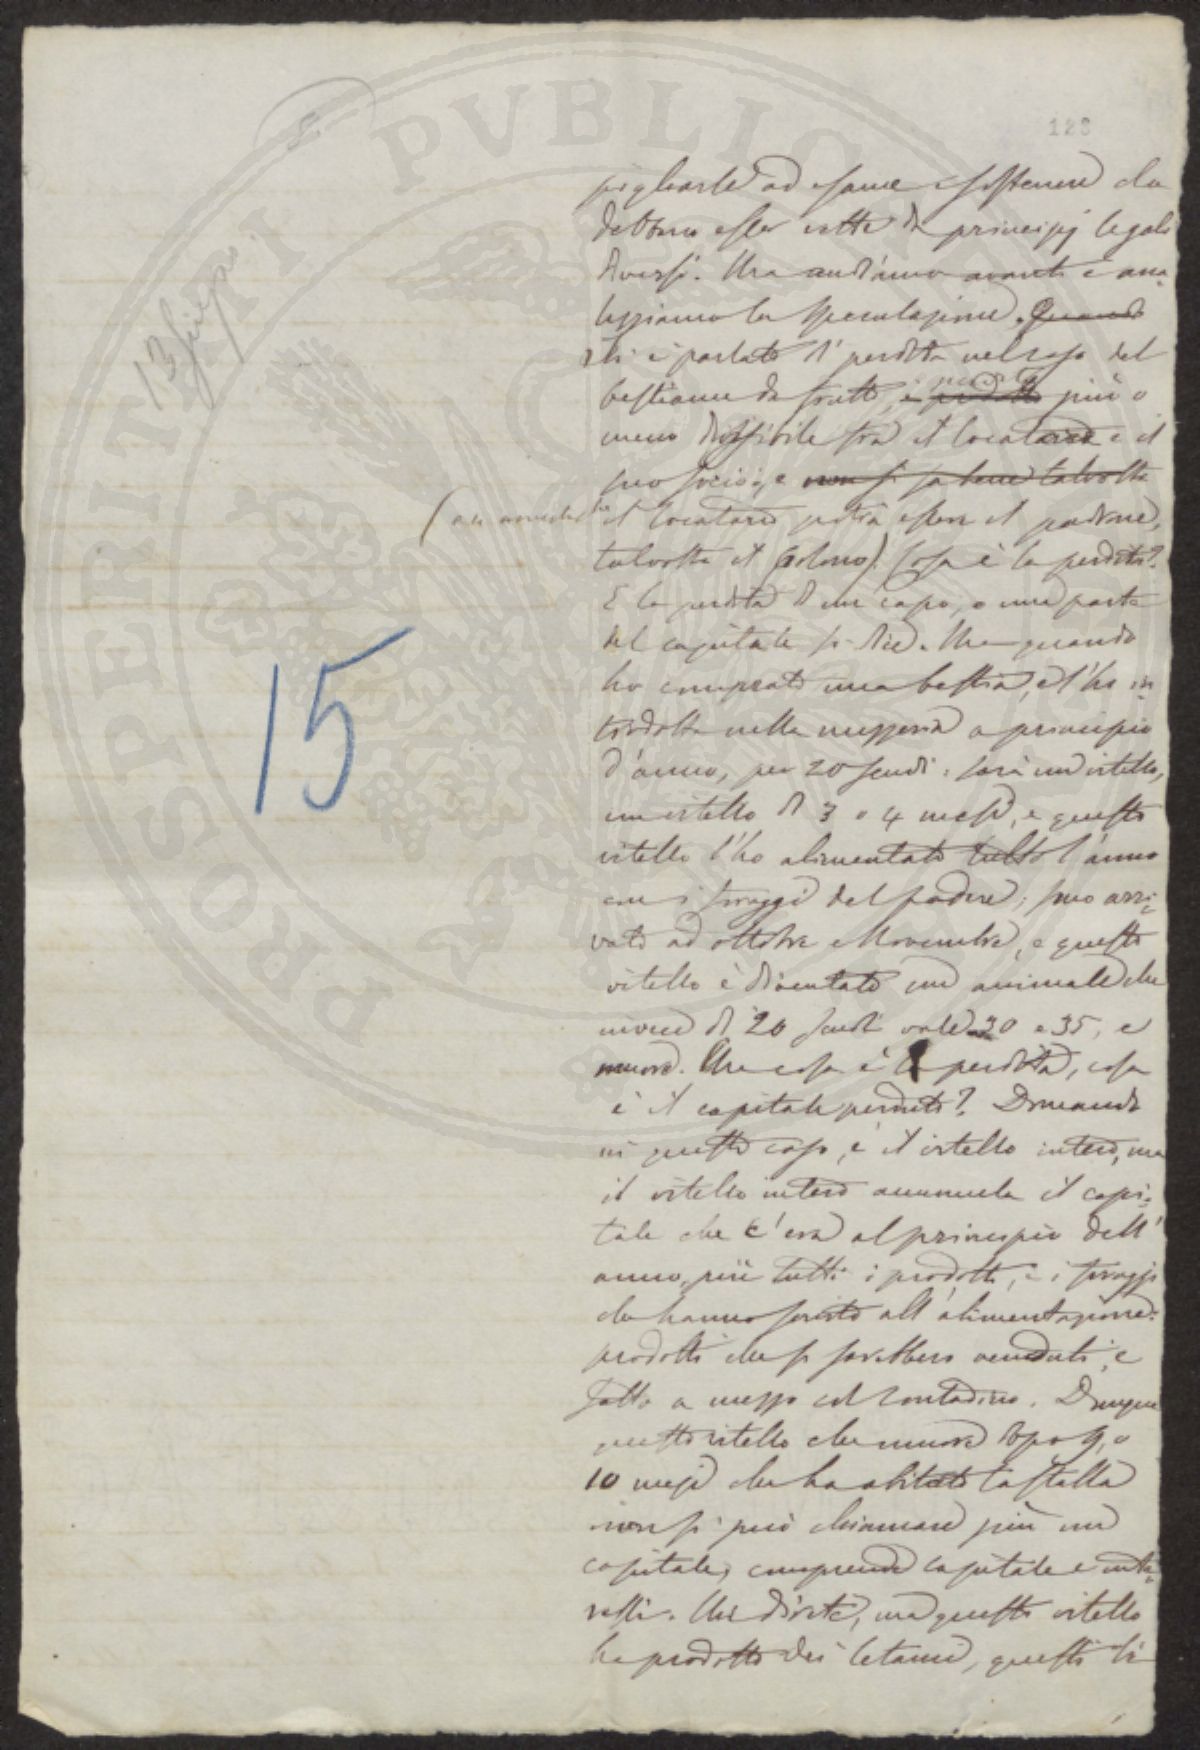 128
13 giugno
pigliarle ad esame e sostenere che
debbono esser rette da principj legali
diversi. Ma andiamo avanti e ana-
lizziamo la speculazione. Quando
Si è parlato di perdita nel caso del
bestiame da frutto, è perdita più o
meno divisibile fra il locatario e il
suo socio, e non si sa bene talvolta
il locatario potrà essere il padrone,
talvolta il colono). Cosa è la perdita?
È la perdita di un capo, o una parte
del capitale si dice. Ma quando
ho comprato una bestia, e l'ho in-
trodotta nella mezzeria a principio
d'anno, per 20 scudi: sarà un vitello,
un vitello di 3 o 4 mesi, e questo
vitello l'ho alimentato tutto l'anno
con i foraggi del podere; sono arri-
vato ad ottobre e Novembre, e questo
vitello è diventato un animale che
invece di 20 scudi vale 30 o 35, e
muore. Ma cosa è la perdita, cosa
è il capitale perduto? Domando
in questo caso, è il vitello intero, ma
il vitello intero accumula il capi-
tale che c'era al principio dell'
anno, più tutti i prodotti, e i foraggi
che hanno servito all'alimentazione:
prodotti che si sarebbero venduti, e
fatto a mezzo col contadino. Dunque
questo vitello che muore dopo 9, o
10 mesi che ha abitato la stalla
non si può chiamare più un
capitale, comprende capitale e inte-
ressi. Mi direte, ma questo vitello
ha prodotto dei letami, questi li
15